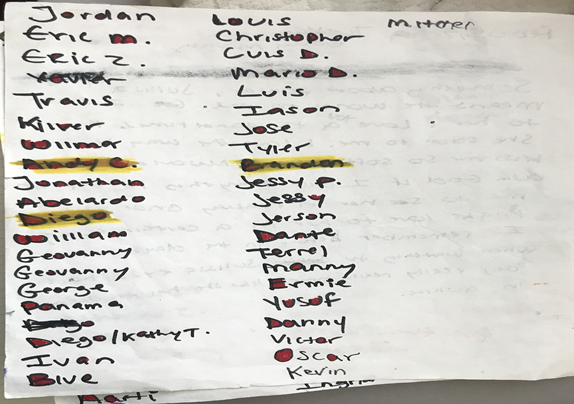 Jordan
Eric M.
Eric Z.
Xavier
Travis
Kilver
Willmer
Andy C.
Jonathan
Abelardo
Diego
William
Geovanny
Geovanny
George
Panama
Diego/Kathy T.
Ivan
Blue
Marti
Louis
Christopher
Luis D.
Mario D.
Luis
Jason
Jose
Tyler
Brandon
Jessy P.
Jessy
Jerson
Dante
Ferrel
Manny
Ermie
Yusof
Danny
Victor
Oscar
Kevin
Ingrin